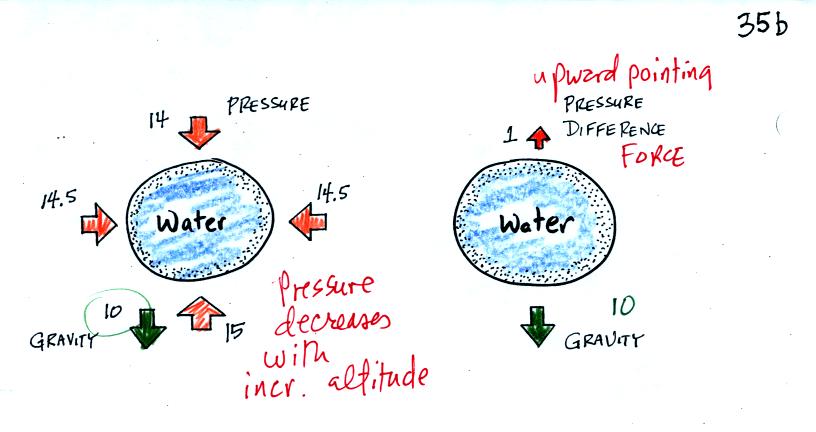 35b
14
PRESSURE
14.5
14.5
Water
10
GRAVITY
15
Pressure
decreases
with
incr. altitude
upward pointing
PRESSURE
1
DIFFERENCE
FORCE
Water
10
GRAVITY